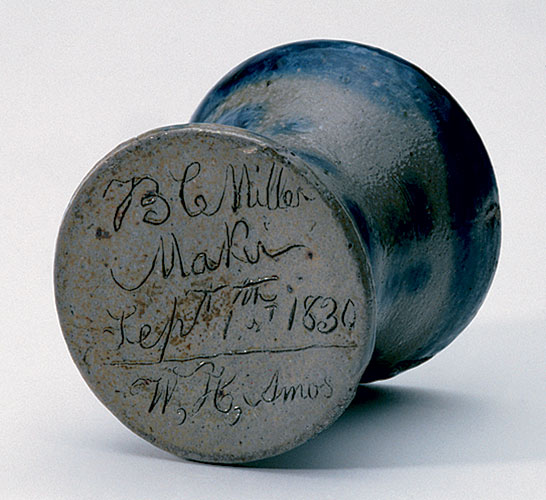 B C Miller
Maker
Sept 1th st 1830
W, H, Amos